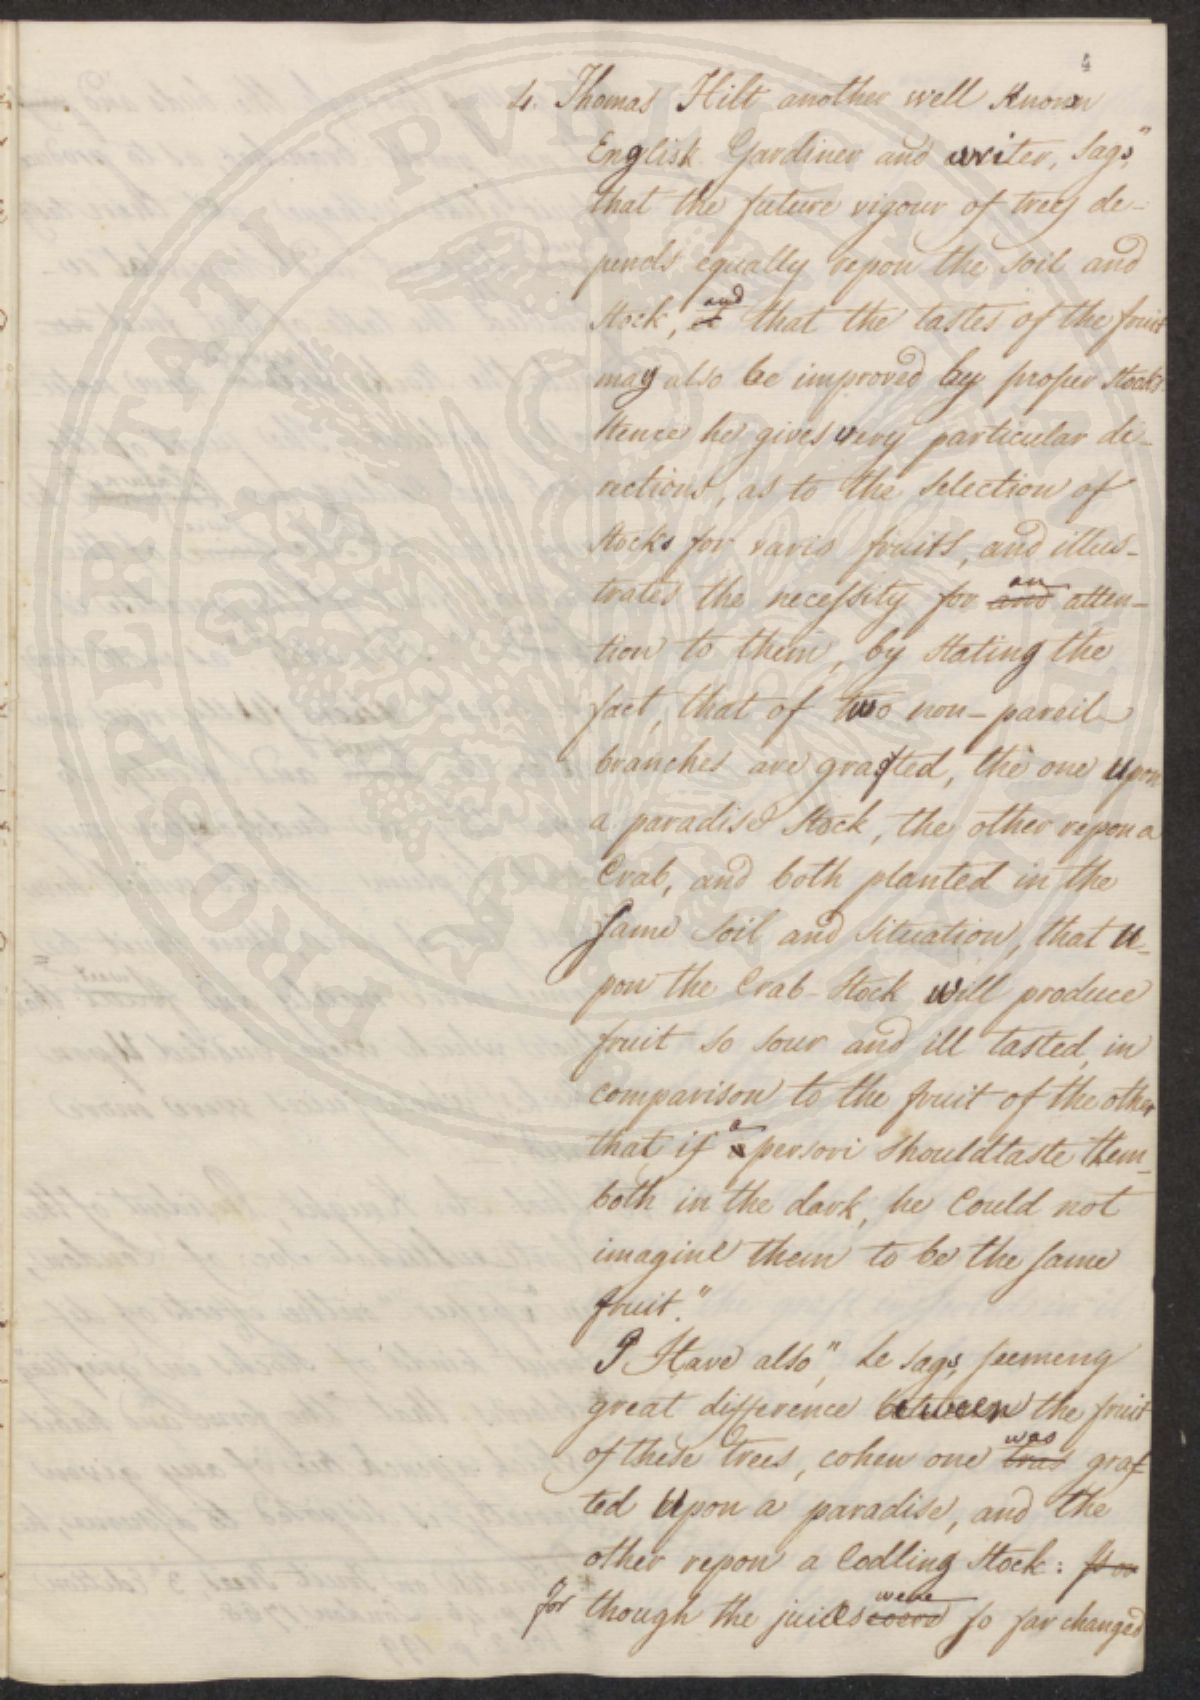 4
4. Thomas Hilt another well Known
English Gardiner and writer, says,"
that the future vigour of trees de-
pends equally repon the soil and
Stock, and that the tastes of the fruit
may also be improved by proper stocks
Hence he gives very particular di-
rections, as to the selection of
Stocks for varis fruits, and illus-
trates the necessity for an and atten-
tion to them, by stating the
fact, that of two non-pareil
branches are grafted, the one upon
a paradise Stock, the other repon a
Crab, and both planted in the
same soil and situation, that u-
pon the Crab-Stock will produce
fruit so sour and ill tasted, in
comparison to the fruit of the other
that, if a persori should taste them
both in the dark, he Could not
imagine them to be the same
fruit."
I Have also," he says, seemeng
great difference between the fruit
of these trees, cohen one was tras graf-
ted Upon a paradise, and the
other repon a Codling Stock:
for though the juices were coere so far changed
PROSPERITATI PVBLICAE